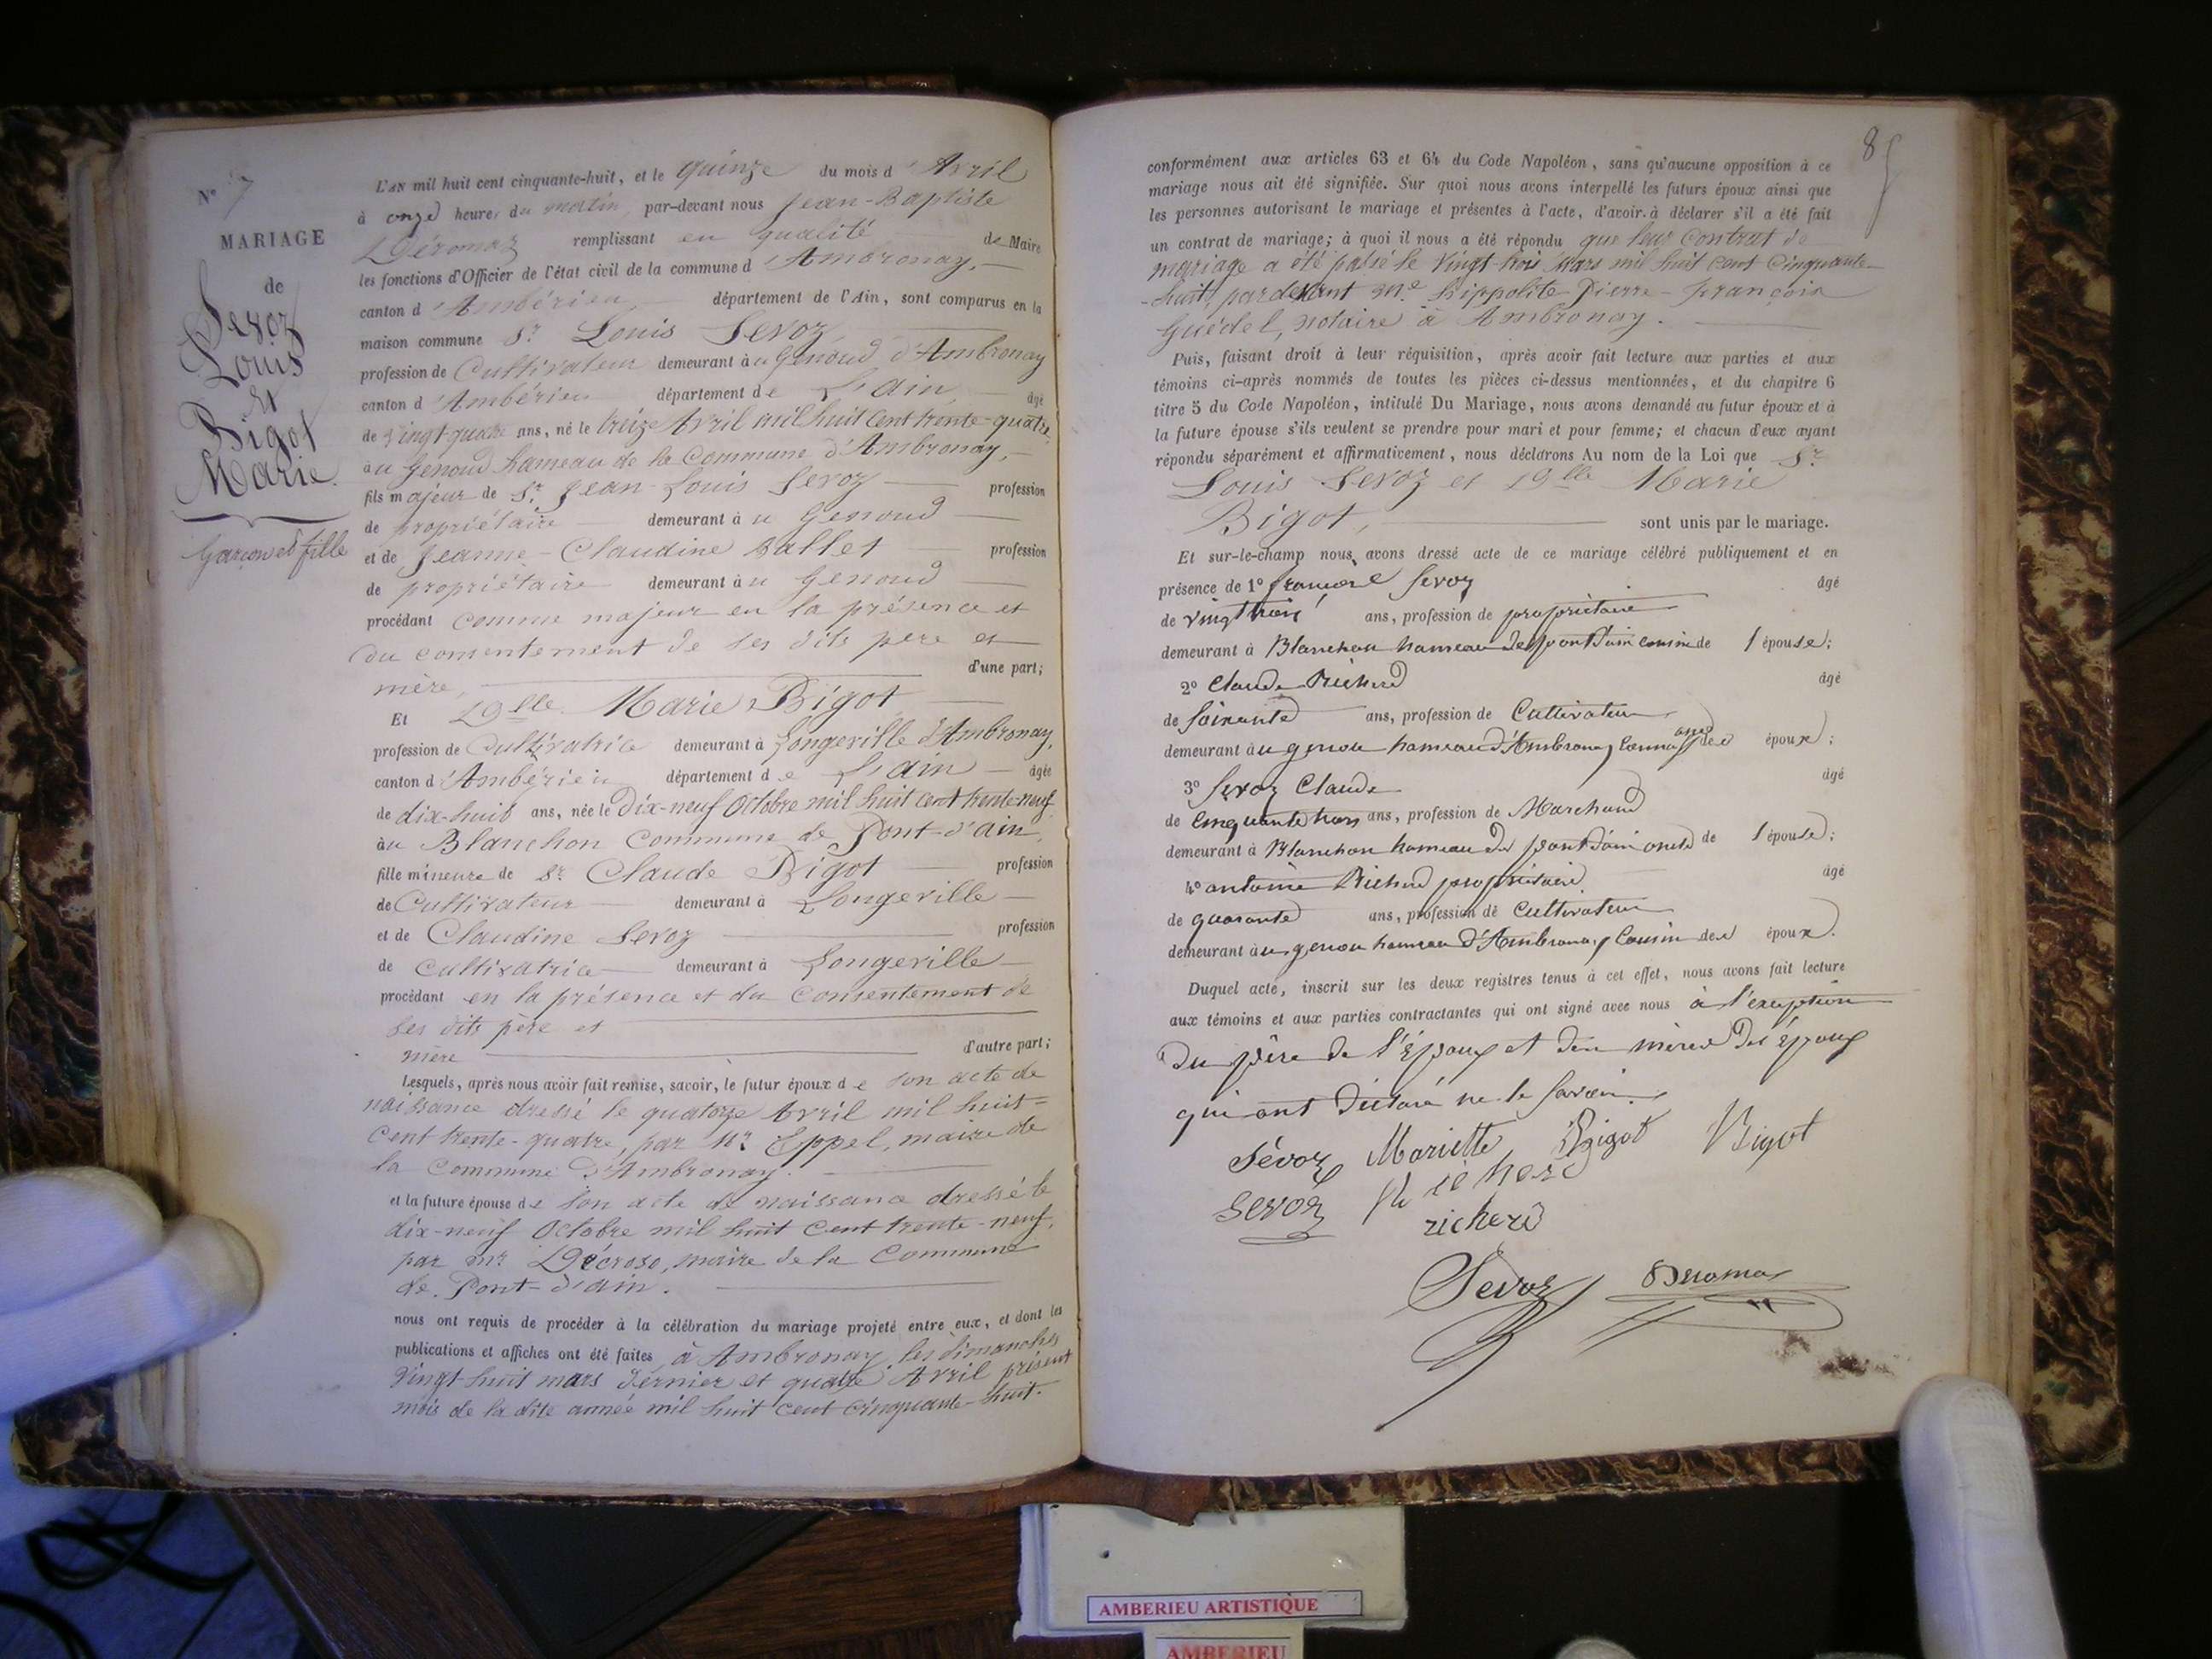 N° 7
MARIAGE
de
Sevoz
Louis
et
Bigot
Marie.
Garçon et fille
L'AN mil huit cent cinquante-huit, et le quinze du mois d'Avril
à onze heures du matin, par-devant nous Jean-Baptiste
Déromaz remplissant en qualité de Maire
les fonctions d'Officier de l'état civil de la commune d'Ambronay,
canton d'Ambérieu département de l'Ain, sont comparus en la
maison commune Sr. Louis Sevoz
profession de Cultivateur demeurant au Genoud d'Ambronay
canton d'Ambérieu département de L'ain, âgé
de vingt quatre ans, né le treize Avril mil huit cent trente-quatre
au Genoud hameau de la Commune d'Ambronay,
fils majeur de Sr. Jean-Louis Sevoz profession
de propriétaire demeurant au Genoud
et de Jeanne-Claudine Ballet profession
de propriétaire demeurant au Genoud
procédant comme majeur en la présence et
du consentement de ses dits père et
mère, d'une part;
Et Dlle. Marie Bigot
profession de Cultivatrice demeurant à Longeville d'Ambronay,
canton d'Ambérieu département de L'ain âgée
de dix-huit ans, née le Dix-neuf Octobre mil huit cent trente-neuf
au Blanchon Commune de Pont-d'ain,
fille mineure de Sr. Claude Bigot profession
de Cultivateur demeurant à Longeville
et de Claudine Sevoz profession
de Cultivatrice demeurant à Longeville
procédant en la présence et du Consentement de
ses dits père et
mère d'autre part;
Lesquels, après nous avoir fait remise, savoir, le futur époux de son acte de
naissance dressé le quatorze Avril mil huit=
Cent trente-quatre, par Mr. Eppel, maire de
la Commune d'Ambronay.
et la future épouse de son acte de naissance dressé le
dix-neuf Octobre mil huit Cent trente-neuf,
par Mr. Décroso, maire de la Commune
de Pont-d'ain.
nous ont requis de procéder à la célébration du mariage projeté entre eux, et dont les
publications et affiches ont été faites à Ambronay, les dimanches
Vingt huit mars dernier et quatre Avril présent
mois de la dite année mil huit cent cinquante-huit.
85
conformément aux articles 63 et 64 du Code Napoléon, sans qu'aucune opposition à ce
mariage nous ait été signifiée. Sur quoi nous avons interpellé les futurs époux ainsi que
les personnes autorisant le mariage et présentes à l'acte, d'avoir à déclarer s'il a été fait
un contrat de mariage; à quoi il nous a été répondu que leur Contrat de
mariage a été passé le vingt-trois Mars mil huit cent Cinquante-
-huit, pardevant Me. hippolite-Pierre-François
Guédel, notaire à Ambronay.
Puis, faisant droit à leur réquisition, après avoir fait lecture aux parties et aux
témoins ci-après nommés de toutes les pièces ci-dessus mentionnées, et du chapitre 6
titre 5 du Code Napoléon, intitulé Du Mariage, nous avons demandé au futur époux et à
la future épouse s'ils veulent se prendre pour mari et pour femme; et chacun d'eux ayant
répondu séparément et affirmativement, nous déclarons Au nom de la Loi que Sr.
Louis Sevoz et Dlle Marie
Bigot, sont unis par le mariage.
Et sur-le-champ nous avons dressé acte de ce mariage célébré publiquement et en
présence de 1° Sevoz âgé
de vingt trois ans, profession de propriétaire
demeurant à Blanchon hameau de pont d'ain cousin de l'épouse;
2° Claude Richerd âgé
de soixante ans, profession de Cultivateur
demeurant au genou hameau d'Ambronay des époux;
3° Sevoz Claude âgé
de cinquante trois ans, profession de Marchand
demeurant à Blanchon hameau de pont d'ain oncle de l'épouse;
4° antoine Richerd propriétaire âgé
de quarante ans, profession de Cultivateur
demeurant au genou hameau d'Ambronay Cousin des époux.
Duquel acte, inscrit sur les deux registres tenus à cet effet, nous avons fait lecture
aux témoins et aux parties contractantes qui ont signé avec nous à l'exception
du père de l'époux et des mères des époux
qui ont déclaré ne le savoir.
Sévoz Mariette Bigot Bigot
Sevoz Richerd
richerd
Sevoz Deromaz
AMBERIEU ARTISTIQUE
AMBERIEU